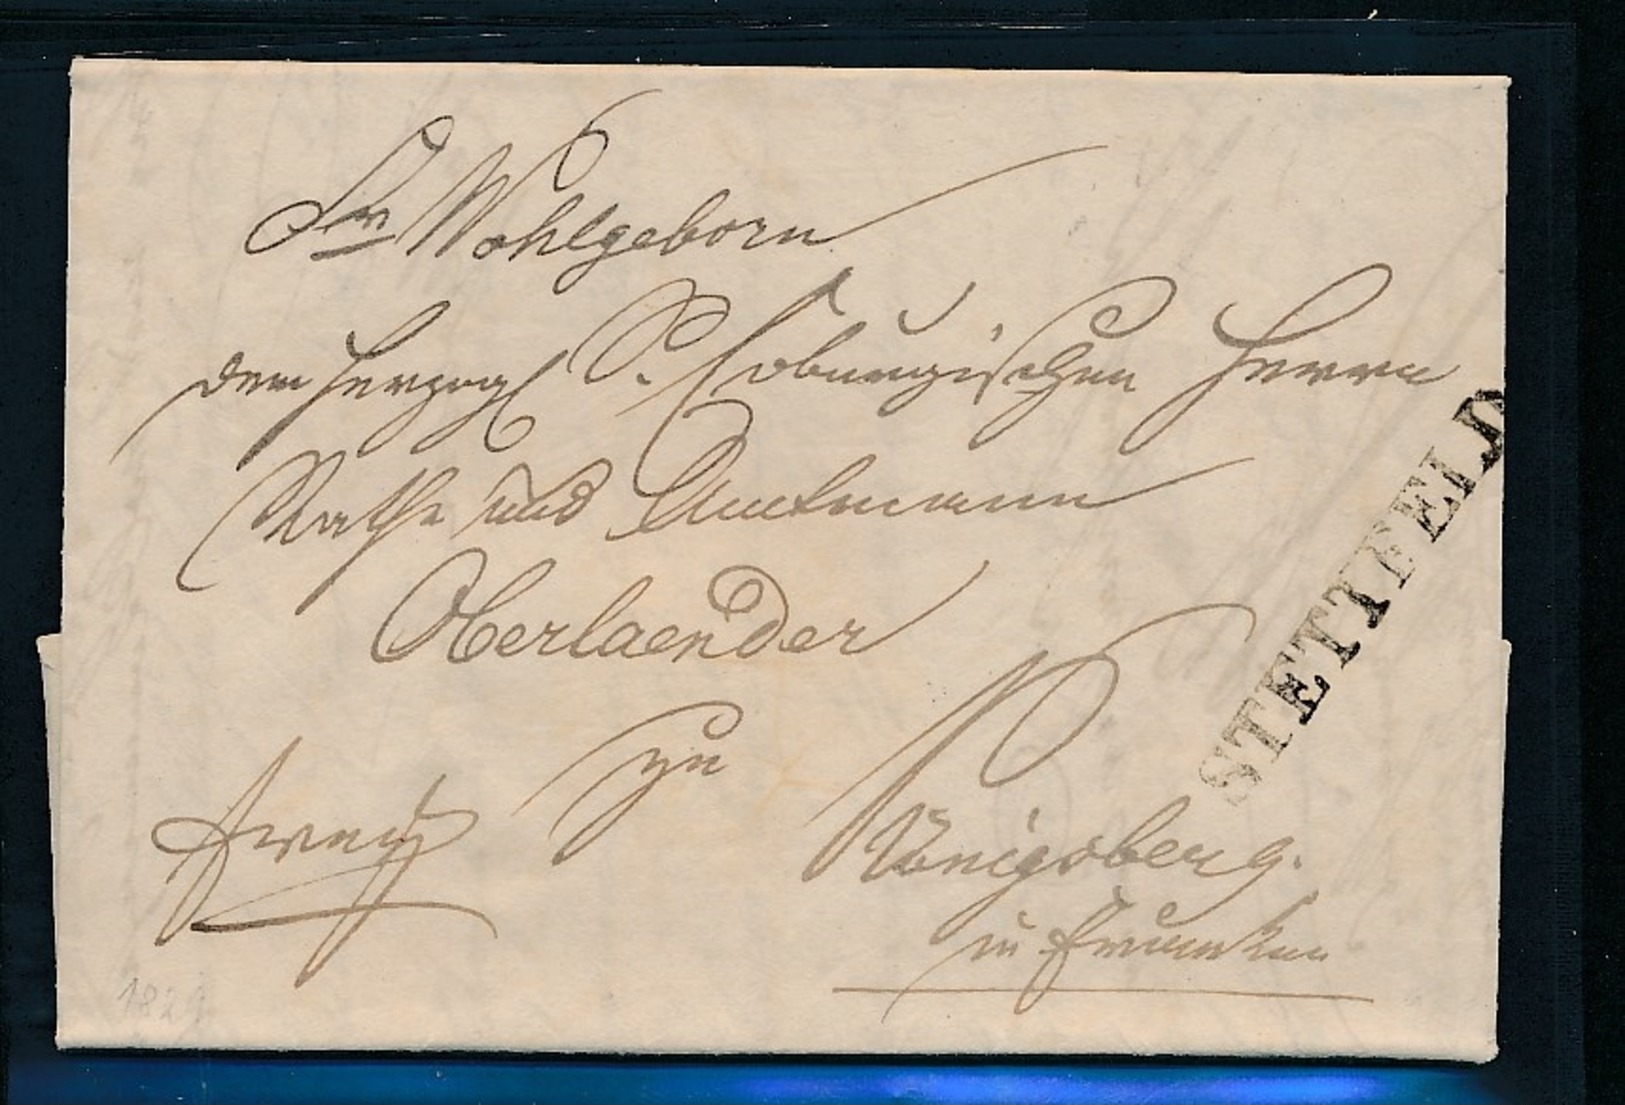 Sr Wohlgeborn
dem herzogl S. Coburgischen Herrn
Rathe und Amtmann
Oberlaender
zu
Königsberg.
in Franken
frey
STETTFELD